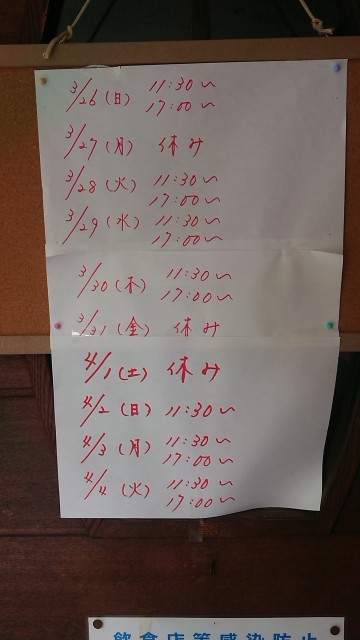 3/26(日) 11:30~
17:00~
3/27(月) 休み
3/28(火) 11:30~
17:00~
3/29(水) 11:30~
17:00~
3/30(木) 11:30~
17:00~
3/31(金) 休み
4/1(土) 休み
4/2(日) 11:30~
4/3(月) 11:30~
17:00~
4/4(火) 11:30~
17:00~
飲食店等感染防止